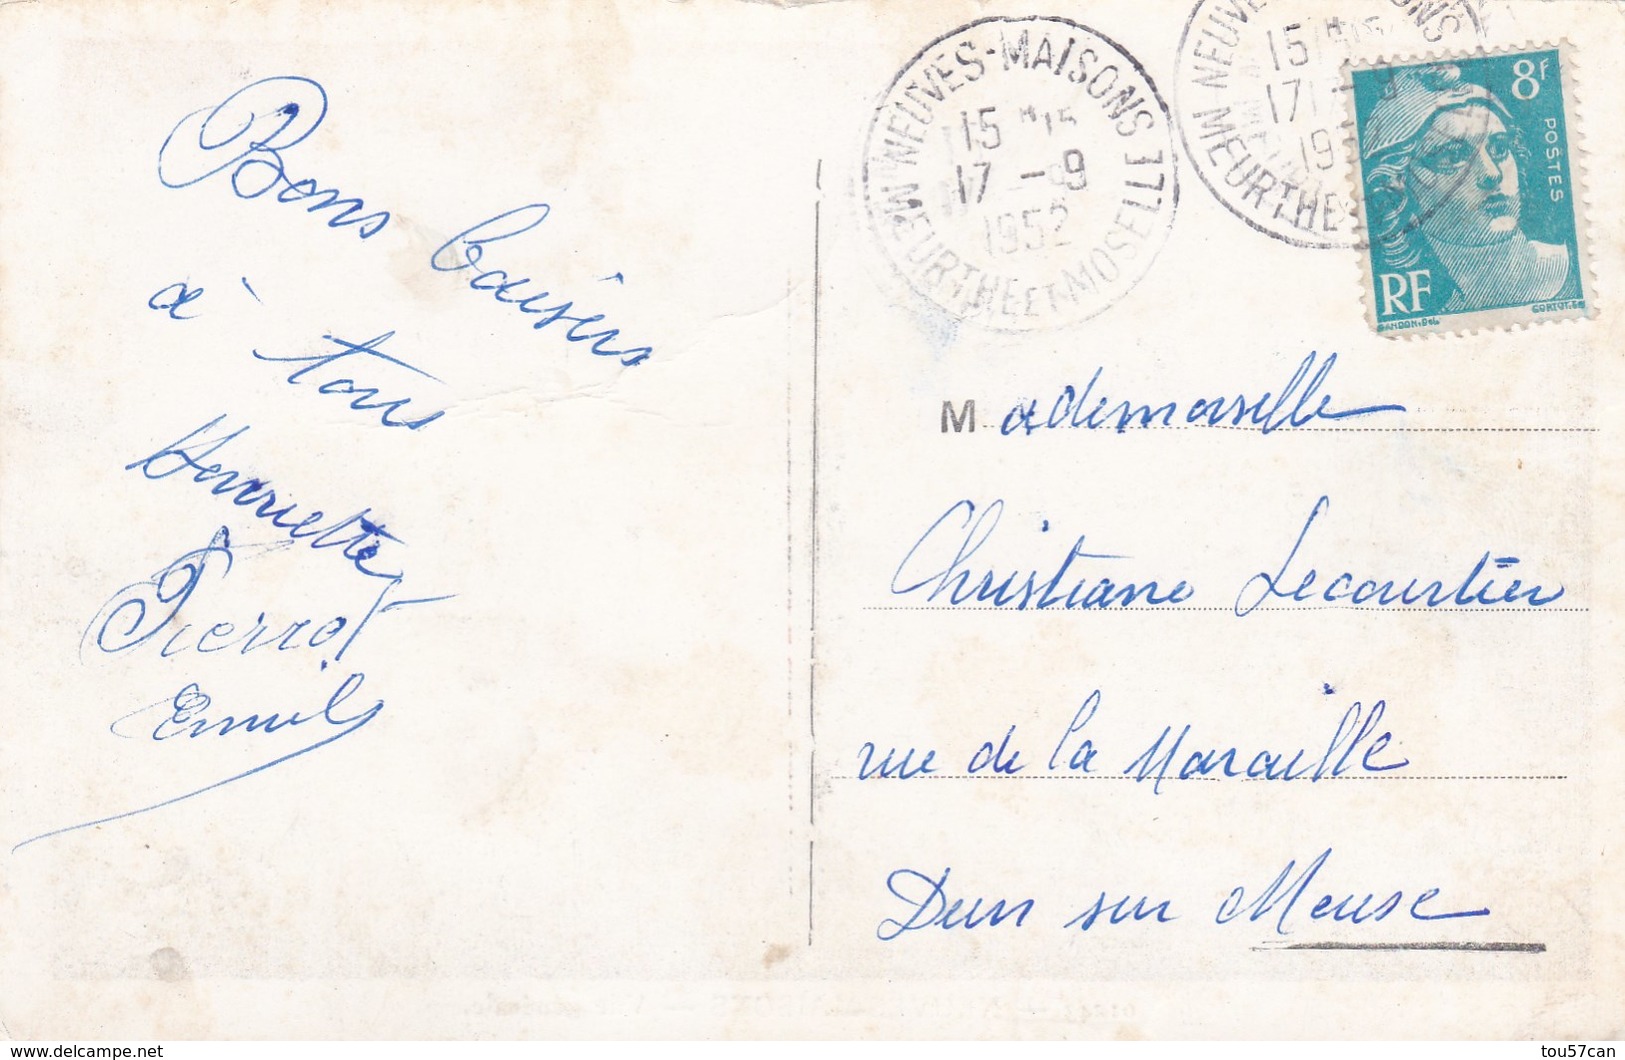 Bons baisers
à tous
Henriette
Pierrot
Emile
NEUVES-MAISONS
15 H 15
17 - 9
1952
MEURTHE ET MOSELLE
NEUVES-MAISONS
15 H 15
17 - 9
1952
MEURTHE ET MOSELLE
8F
POSTES
RF
GANDON.DEL
CORTOT.SC
Mademoiselle
Christiane Lecourtier
rue de la Maraille
Dun sur Meuse
NEUVES-MAISONS — Vue générale
tou57can